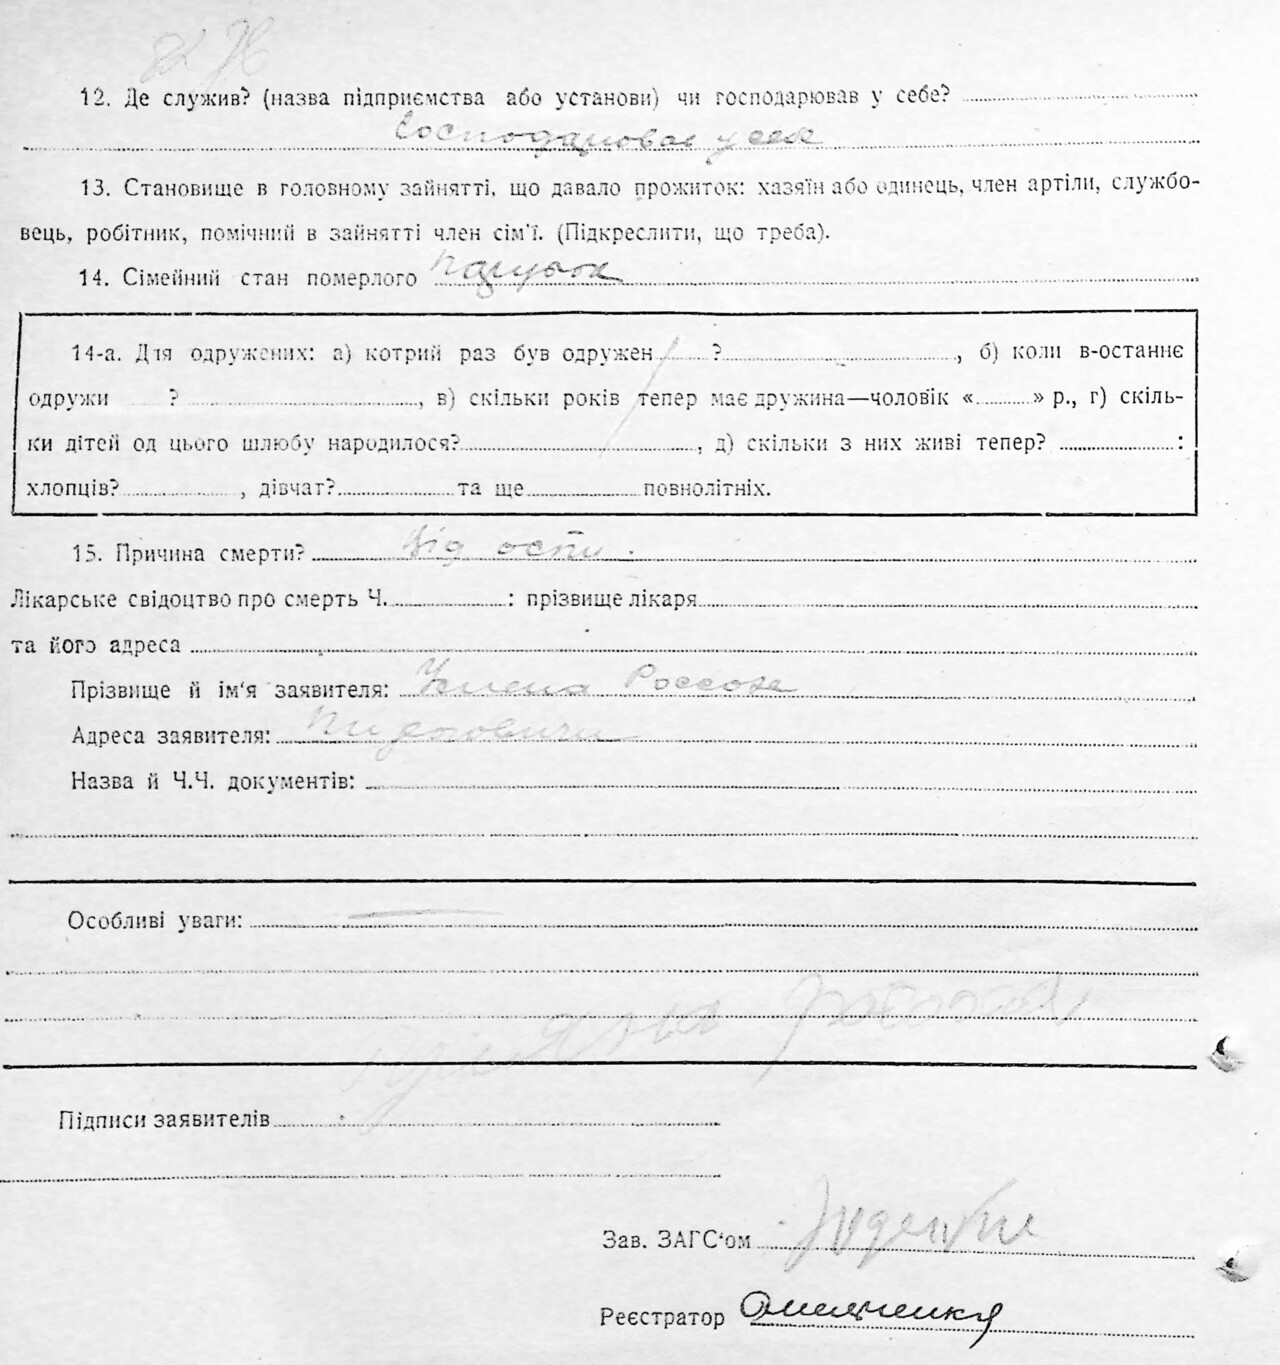 12. Де служив? (назва підприємства або установи) чи господарював у себе?
Господарював у себе
13. Становище в головному зайнятті, що давало прожиток: хазяїн або одинець, член артіли, службо-
вець, робітник, помічний в зайнятті член сім'ї. (Підкреслити, що треба).
14. Сімейний стан померлого парубок
14-а. Для одружених: а) котрий раз був одружен ? , б) коли в-останнє
одружи ? , в) скільки років тепер має дружина—чоловік « » р., г) скіль-
ки дітей од цього шлюбу народилося? , д) скільки з них живі тепер? :
хлопців? , дівчат? та ще повнолітніх.
15. Причина смерти? Від оспи.
Лікарське свідоцтво про смерть Ч. : прізвище лікаря
та його адреса
Прізвище й ім'я заявителя:
Адреса заявителя:
Назва й Ч.Ч. документів:
Особливі уваги: —
Підписи заявителів
Зав. ЗАГС'ом
Реєстратор